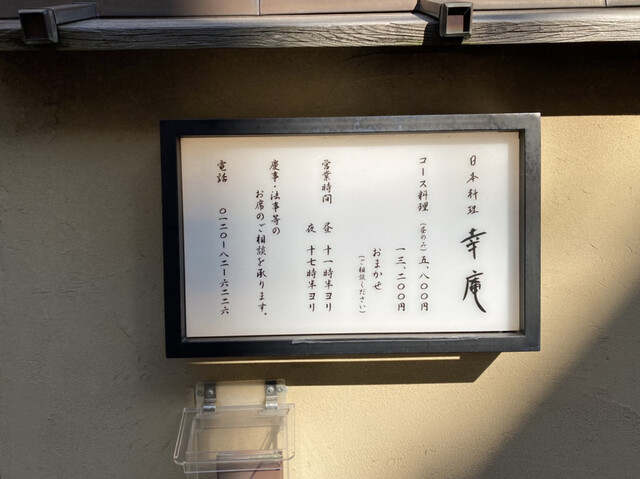 日本料理 幸庵
コース料理 (昼のみ) 五、八〇〇円
一三、二〇〇円
おまかせ
(ご相談ください)
営業時間 昼 十一時半ヨリ
夜 十七時半ヨリ
慶事・法事等の
お席のご相談を承ります。
電話 〇一二〇-八二-六二二六